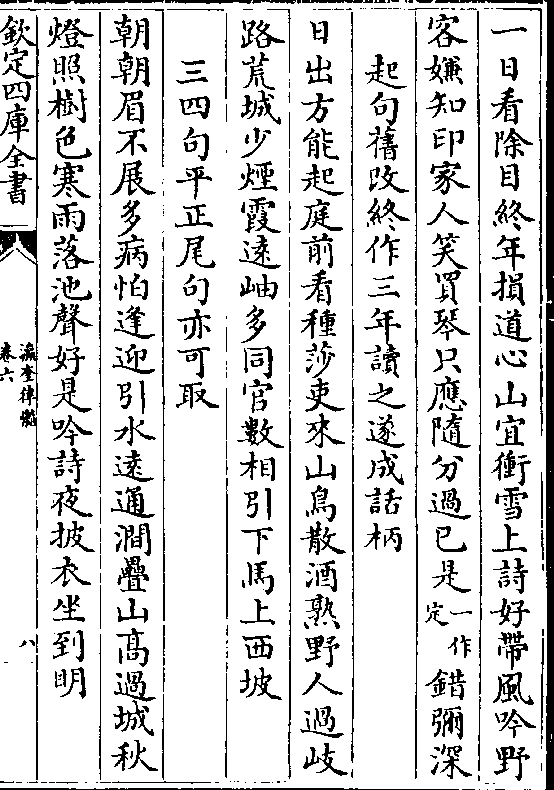 一日看除目終年損道心山宜衝雪上詩好帶風吟野
客嫌知印家人笑買琴只應隨分過已是一作定錯彌深
起句舊改終作三年讀之遂成話柄
日出方能起庭前看種莎吏來山鳥散酒熟野人過岐
路荒城少煙霞遠岫多同官數相引下馬上西坡
三四句平正尾句亦可取
朝朝眉不展多病怕逢迎引水遠通澗疊山高過城秋
燈照樹色寒雨落池聲好是吟詩夜披衣坐到明
欽定四庫全書
瀛奎律髓
卷六
八